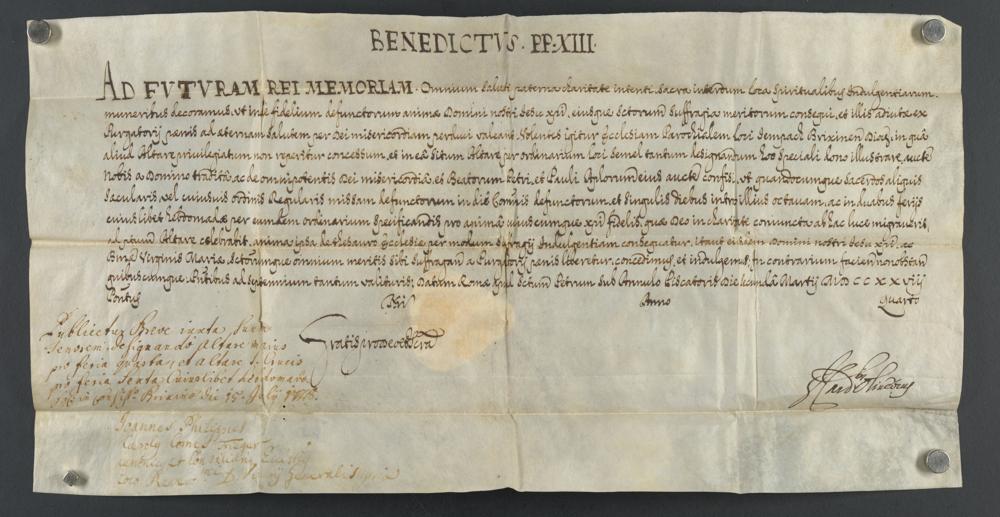 BENEDICTVS · PP·XIII·
AD FVTVRAM REI MEMORIAM · Omnium saluti paterna charitate intenti sacra interdum loca spiritualibus Indulgentiarum
muneribus decoramus, ut inde fidelium defunctorum animæ Domini nostri Jesu xpi, eiusque sctorum suffragia meritorum consequi, et illis adiutæ ex
Purgatorij pœnis ad æternam salutem per Dei misericordiam perduci valeant. Volentes igitur Ecclesiam Parochialem loci Brixinen Diœc, in qua
aliud Altare privilegiatum non reperitur concessum, et in ea situm Altare per ordinarium loci semel tantum designandum hoc speciali dono illustrare, auctte
nobis a Domino tradita, ac de omnipotentis Dei misericordia, et Beatorum Petri, et Pauli Aplorum eius auctte confisi, ut quandocumque sacerdos aliquis
sæcularis, vel cuiusuis ordinis Regularis missam defunctorum in die Comnis defunctorum, et singulis diebus intra illius octauam, ac in duabus ferijs
cuiuslibet hebdomadæ per eundem ordinarium specificandis pro anima cuiuscumque xpi fidelis, quæ Deo in charitate coniuncta ab hac luce migrauerit,
ad Altare celebrabit, anima ipsa de thesauro Ecclesiæ per modum suffragij Indulgentiam consequatur, ita ut eiusdem Domini nostri Jesu xpi, ac
Virginis Mariæ, sctorumque omnium meritis sibi suffragan a Purgatorij pœnis liberetur, concedimus, et indulgemus, In contrarium facien non obstan
quibuscumque, Pntibus ad septennium tantum valituris, Datum Romæ apud sctum Petrum sub Annulo Piscatoris Die Martij MDCCXXVIIJ
Pontus Nri Anno Quarto
Publicetur Breve iuxta sum
tenorem designando Altare maius
pro feria quarta, et Altare S. Crucis
pro feria sexta cuiuslibet hebdomadæ
Brixinæ die 15. July 1728.
Gratis pro Deo et
Joannes Philippus
Caroly Comes
Canonicus et
Generalis